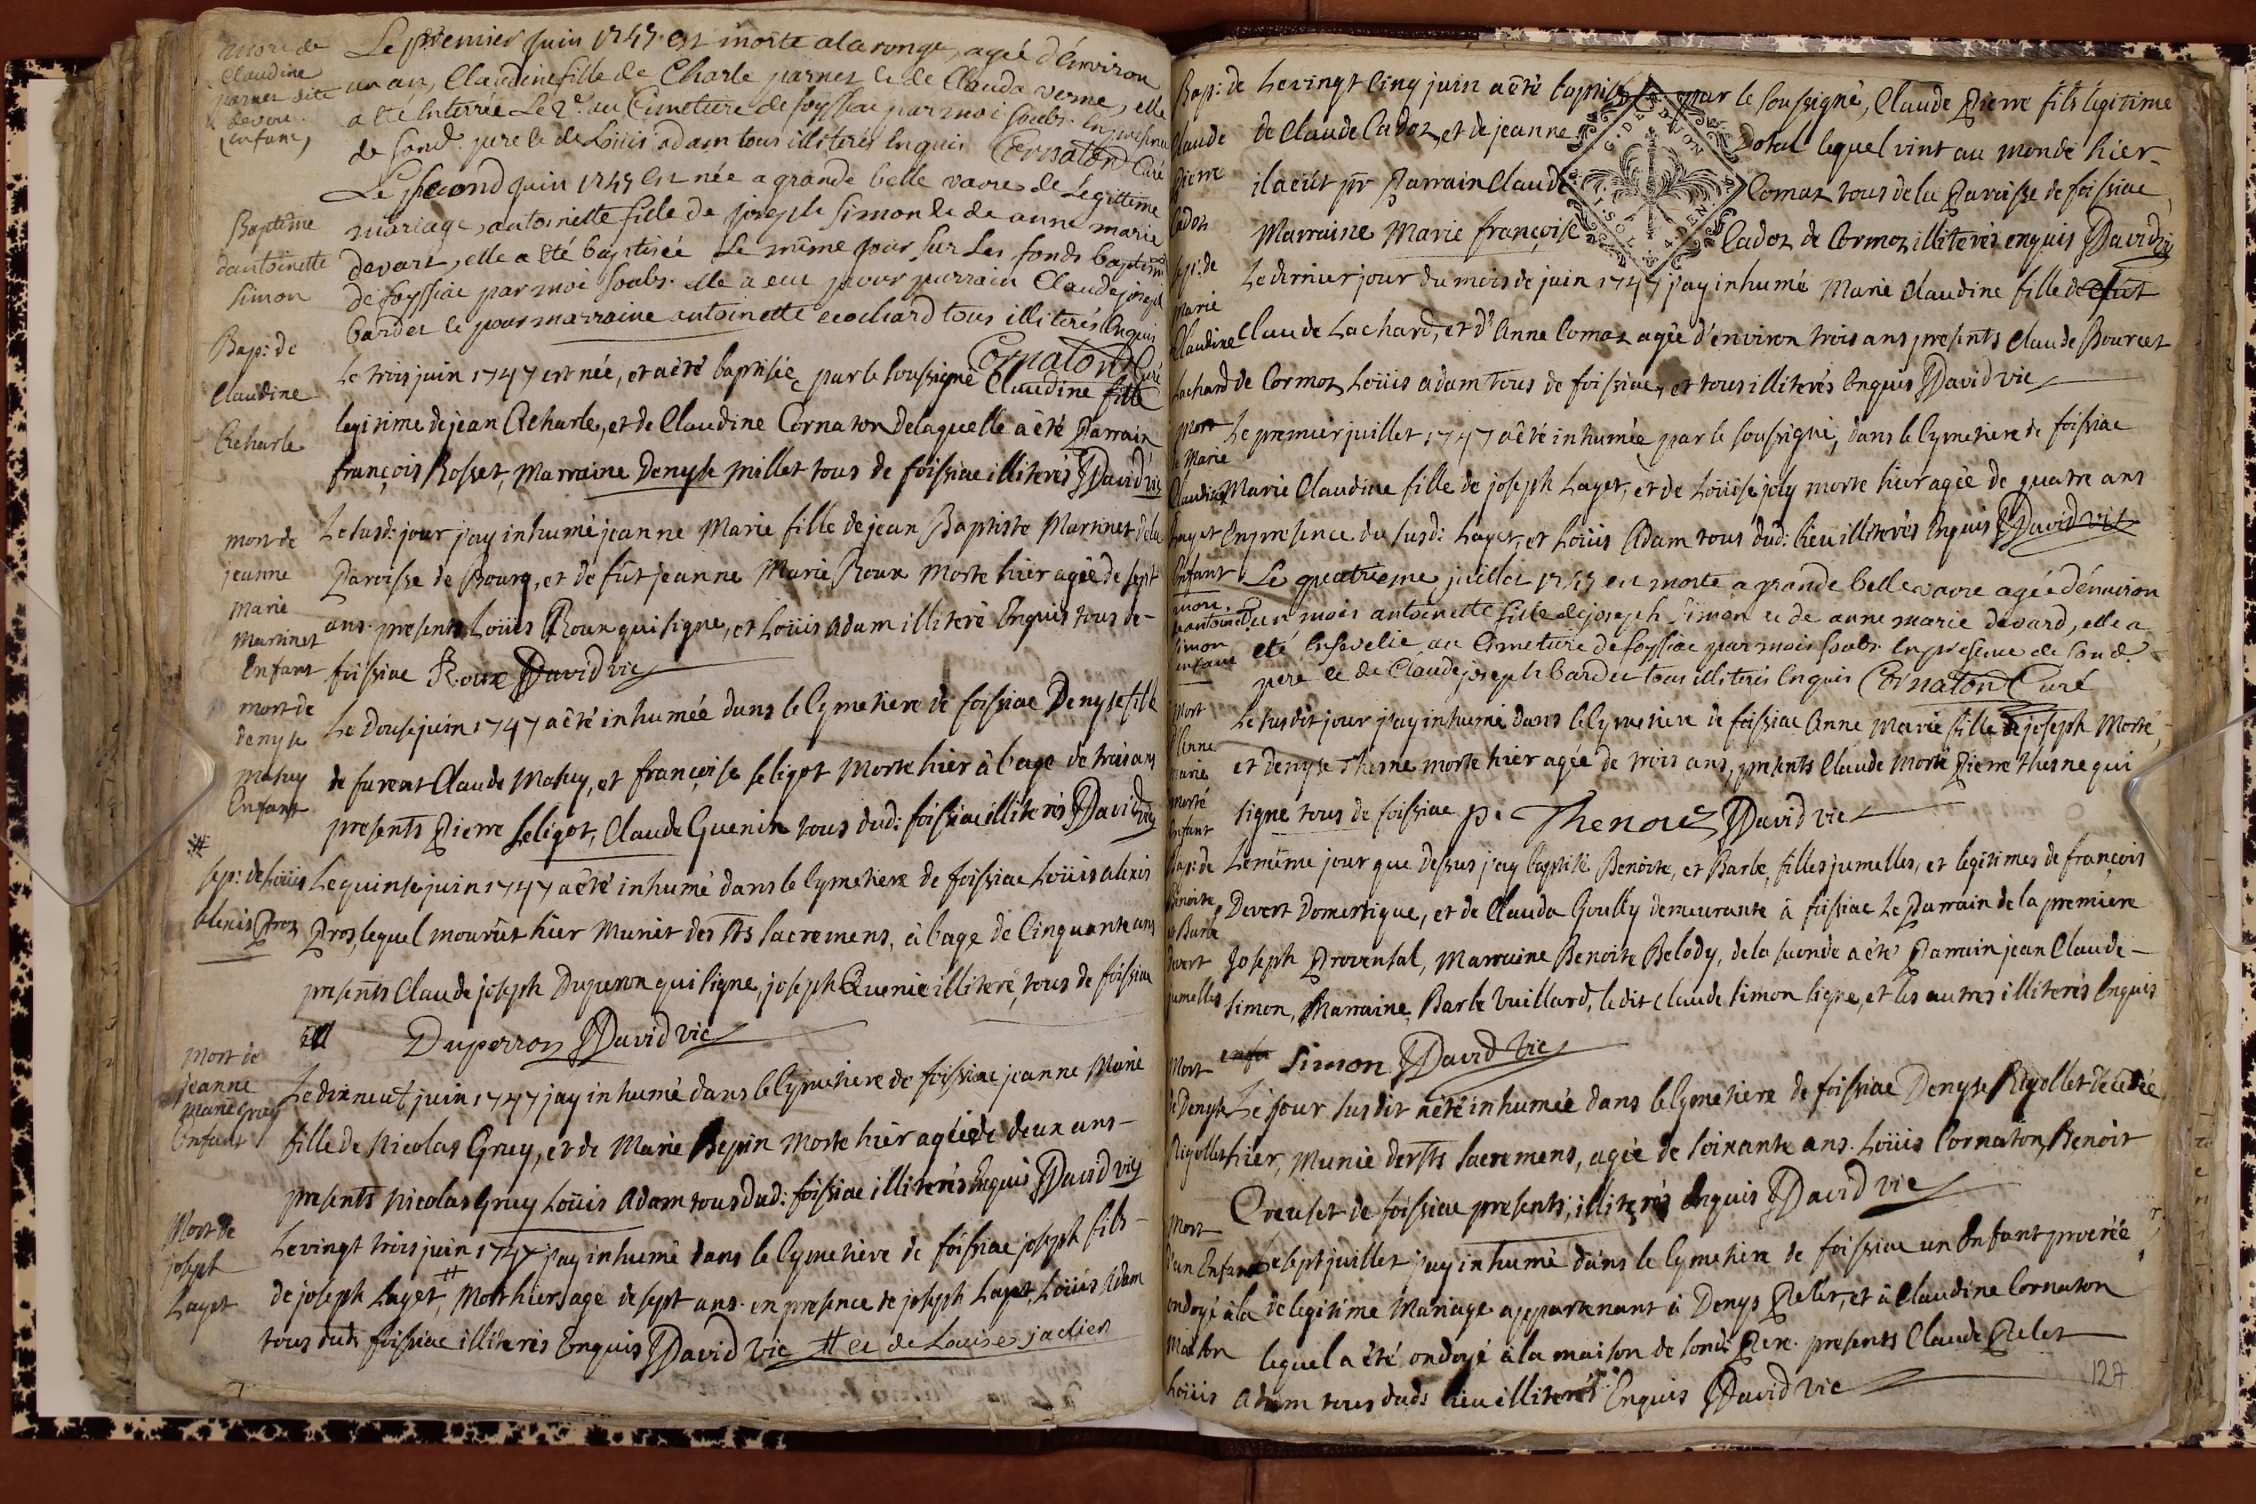 mort de
Claudine
parnet dite
devoré
Enfant,
Le premier juin 1747 est morte a laronge, agée d'Environ
un an, Claudine fille de Charle parnet et de Clauda verne, elle
a été Enterrée Le 2e. au Cimetiere de foyssiac par moi soubs. En presence
de sond. pere et de Loüis adam tous illiterés Enquis Cornaton Curé
Baptême
dantoinette
Simon
Le second juin 1747 est née a grande belle vavre de Legittime
mariage, antoinette fille de joseph Simon et de anne marie
devart, elle a été baptisée Le même jour sur Les fonds baptism
de foyssiac par moi soubs. elle a eue pour parrain Claude joseph
bardet et pour marraine antoinette ecochard tous illiterés Enquis
Cornaton Curé
Bap: de
Claudine
Reharle
Le trois juin 1747 est née, et a été baptisée par le soussigné Claudine fille
legitime de jean Reharle, et de Claudine Cornaton de laquelle a été Parrain
françois Rosset, Marraine Denyse Millet tous de foissiac illiterés David vic
mort de
jeanne
Marie
Martinet
Enfant
Le susd: jour j'ay inhumé jeanne Marie fille de jean Baptiste Martinet de la
Paroisse de Bourg, et de fût jeanne Marie Roux morte hier agée de sept
ans. presents Loüis Roux qui signe, et Loüis Adam illiteré Enquis tous de
foissiac Roux David vic
mort de
denyse
Mahuy
Enfant
Le Douse juin 1747 a été inhumée dans le Cymetiere de foissiac Denyse fille
de furent Claude Mahuy, et françoise Seligot Morte hier à l'age de trois ans
presents Pierre Seligot, Claude Guenin tous dud: foissiac illiterés David vic
sep: de Loüis
Alexis Pros
Le quinse juin 1747 a été inhumé dans le Cymetiere de foissiac Loüis Alexis
Pros, lequel mourût hier Munit des Sts Sacremens, à l'age de Cinquante ans
presents Claude joseph Duperon qui signe, joseph Guenin illiteré, tous de foissiac
Duperron David vic
mort de
jeanne
Marie Gruy
Enfant
Le dix neuf juin 1747 j'ay inhumé dans le Cymetiere de foissiac jeanne Marie
fille de Nicolas Gruy, et de Marie Bepin Morte hier agée de deux ans
presents Nicolas Gruy Loüis Adam tous dud: foissiac illiterés Enquis David vic
Mort de
joseph
Layet
Le vingt trois juin 1747 j'ay inhumé dans le Cymetiere de foissiac joseph fils
de joseph Layet, # Mort hier agé de sept ans. en presence de joseph Layet, Loüis Adam
tous dud: foissiac illiterés Enquis David vic # et de Louise jactier
Bap: de
Claude
Pierre
Cadoz
Le vingt Cinq juin a été baptisé par le soussigné, Claude Pierre fils legitime
de Claude Cadoz, et de jeanne Dotal lequel vint au monde hier
il a eût pr Parrain Claude Comaz tous de la Paroisse de foissiac,
Marraine Marie françoise Cadoz de Cormoz illiterés enquis David vic
G. DE DIJON
sep: de
Marie
Claudine
Lachard
Le dernier jour du mois de juin 1747 j'ay inhumé Marie Claudine fille de
Claude Lachard, et d'Anne Comaz agée d'environ trois ans presents Claude Bourcet
de Cormoz, Loüis Adam tous de foissiac, et tous illiterés Enquis David vic
Mort
de Marie
Claudine
Layet
Enfant
Le premier juillet 1747 a été inhumée par le soussigné, dans le Cymetiere de foissiac
Marie Claudine fille de joseph Layet, et de Loüise joly morte hier agée de quatre ans
En presence du susd: Layet, et Loüis Adam tous dud: lieu illiterés Enquis David vic
mort
d'antoinette
Simon
enfant
Le quatrieme juillet 1747 est morte a grande belle vavre agée d'environ
un mois antoinette fille de joseph Simon et de anne marie devard, elle a
eté Ensevelie au Cimetiere de foyssiac par moi soubs. En presence de Sond.
pere et de Claude joseph bardet tous illiterés Enquis Cornaton Curé
Mort
d'Anne
Marie
Morté
Enfant
Le susdit jour j'ay inhumé dans le Cymetiere de foissiac Anne Marie fille de joseph Morté,
et Denyse Thesne morte hier agée de trois ans, presents Claude Morté Pierre Thesne qui
signe tous de foissiac p. Thenoz David vic
Bap: de
Benoite,
et Barbe
Devert
jumelles
Le même jour que dessus j'ay baptisé Benoite, et Barbe, filles jumelles, et legitimes de françois
Devert Domestique, et de Clauda Goully demeurante à foissiac Le Parrain de la premiere
Joseph Provensal, Marraine Benoite Belody, de la seconde a été Parrain jean Claude
Simon, Marraine, Barbe Vuillard, le dit Claude Simon signe, et les autres illiterés Enquis
Simon David Vic
Mort
de Denyse
Rigollet
Le jour susdit a été inhumée dans le Cymetiere de foissiac Denyse Rigollet decedée
hier, Munie des Sts Sacremens, agée de soixante ans. Loüis Cornaton, Benoit
Creuset de foissiac presents, illiterés Enquis David vic
Mort
d'un Enfant
ondoyé à la
Maison
Le sept juillet j'ay inhumé dans le Cymetiere de foissiac un Enfant procréé
de legitime Mariage appartenant à Denys Pelet, et à Claudine Cornaton
lequel a été ondoyé à la maison de sond: Pere. presents Claude Pelet
Loüis Adam tous dud: lieu illiterés Enquis David vic
127